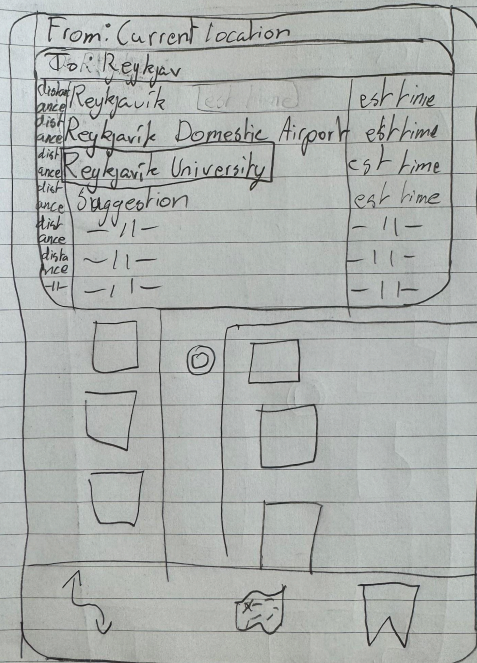 From: Current location
To: Reykjav
distance Reykjavík est time
distance Reykjavík Domestic Airport est time
distance Reykjavík University est time
distance Suggestion est time
distance —11— —11—
distance —11— —11—
-11- —11— —11—